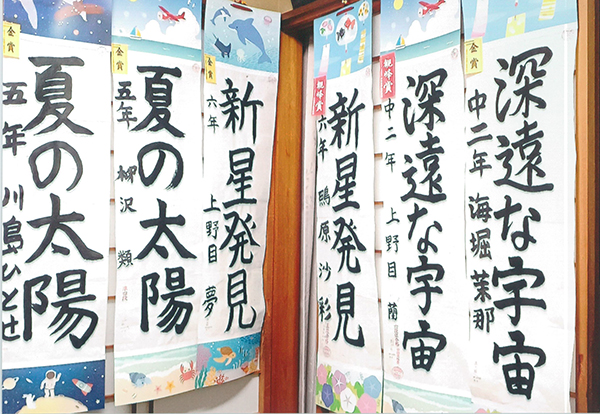 金賞
深遠な宇宙
中二年 海堀 茉那
観峰賞
深遠な宇宙
中二年 上野目
観峰賞
新星発見
六年 鴫原沙彩
金賞
新星発見
六年 上野目 夢
金賞
夏の太陽
五年 柳沢 類
金賞
夏の太陽
五年 川島ひとせ